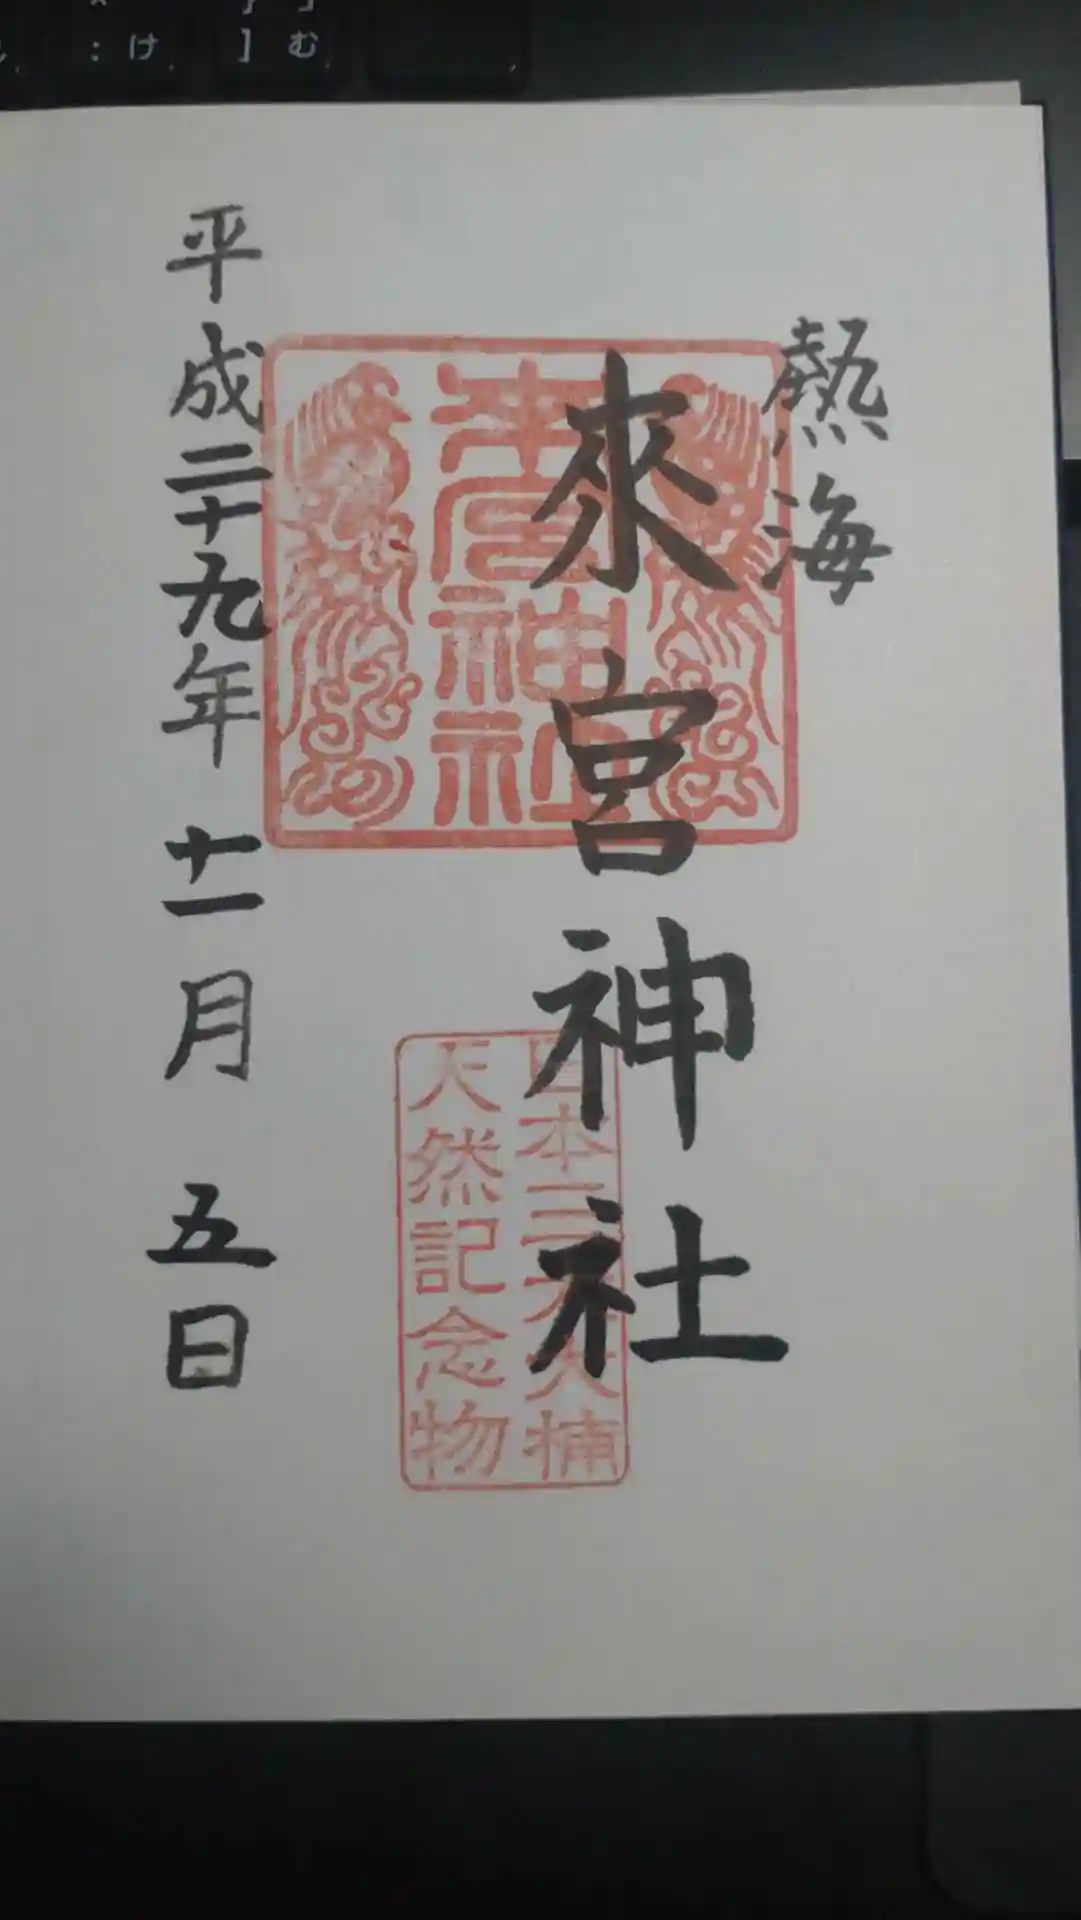 : け ] む
熱海
來宮神社
來宮神社
日本三大大楠
天然記念物
平成二十九年 十一月 五日